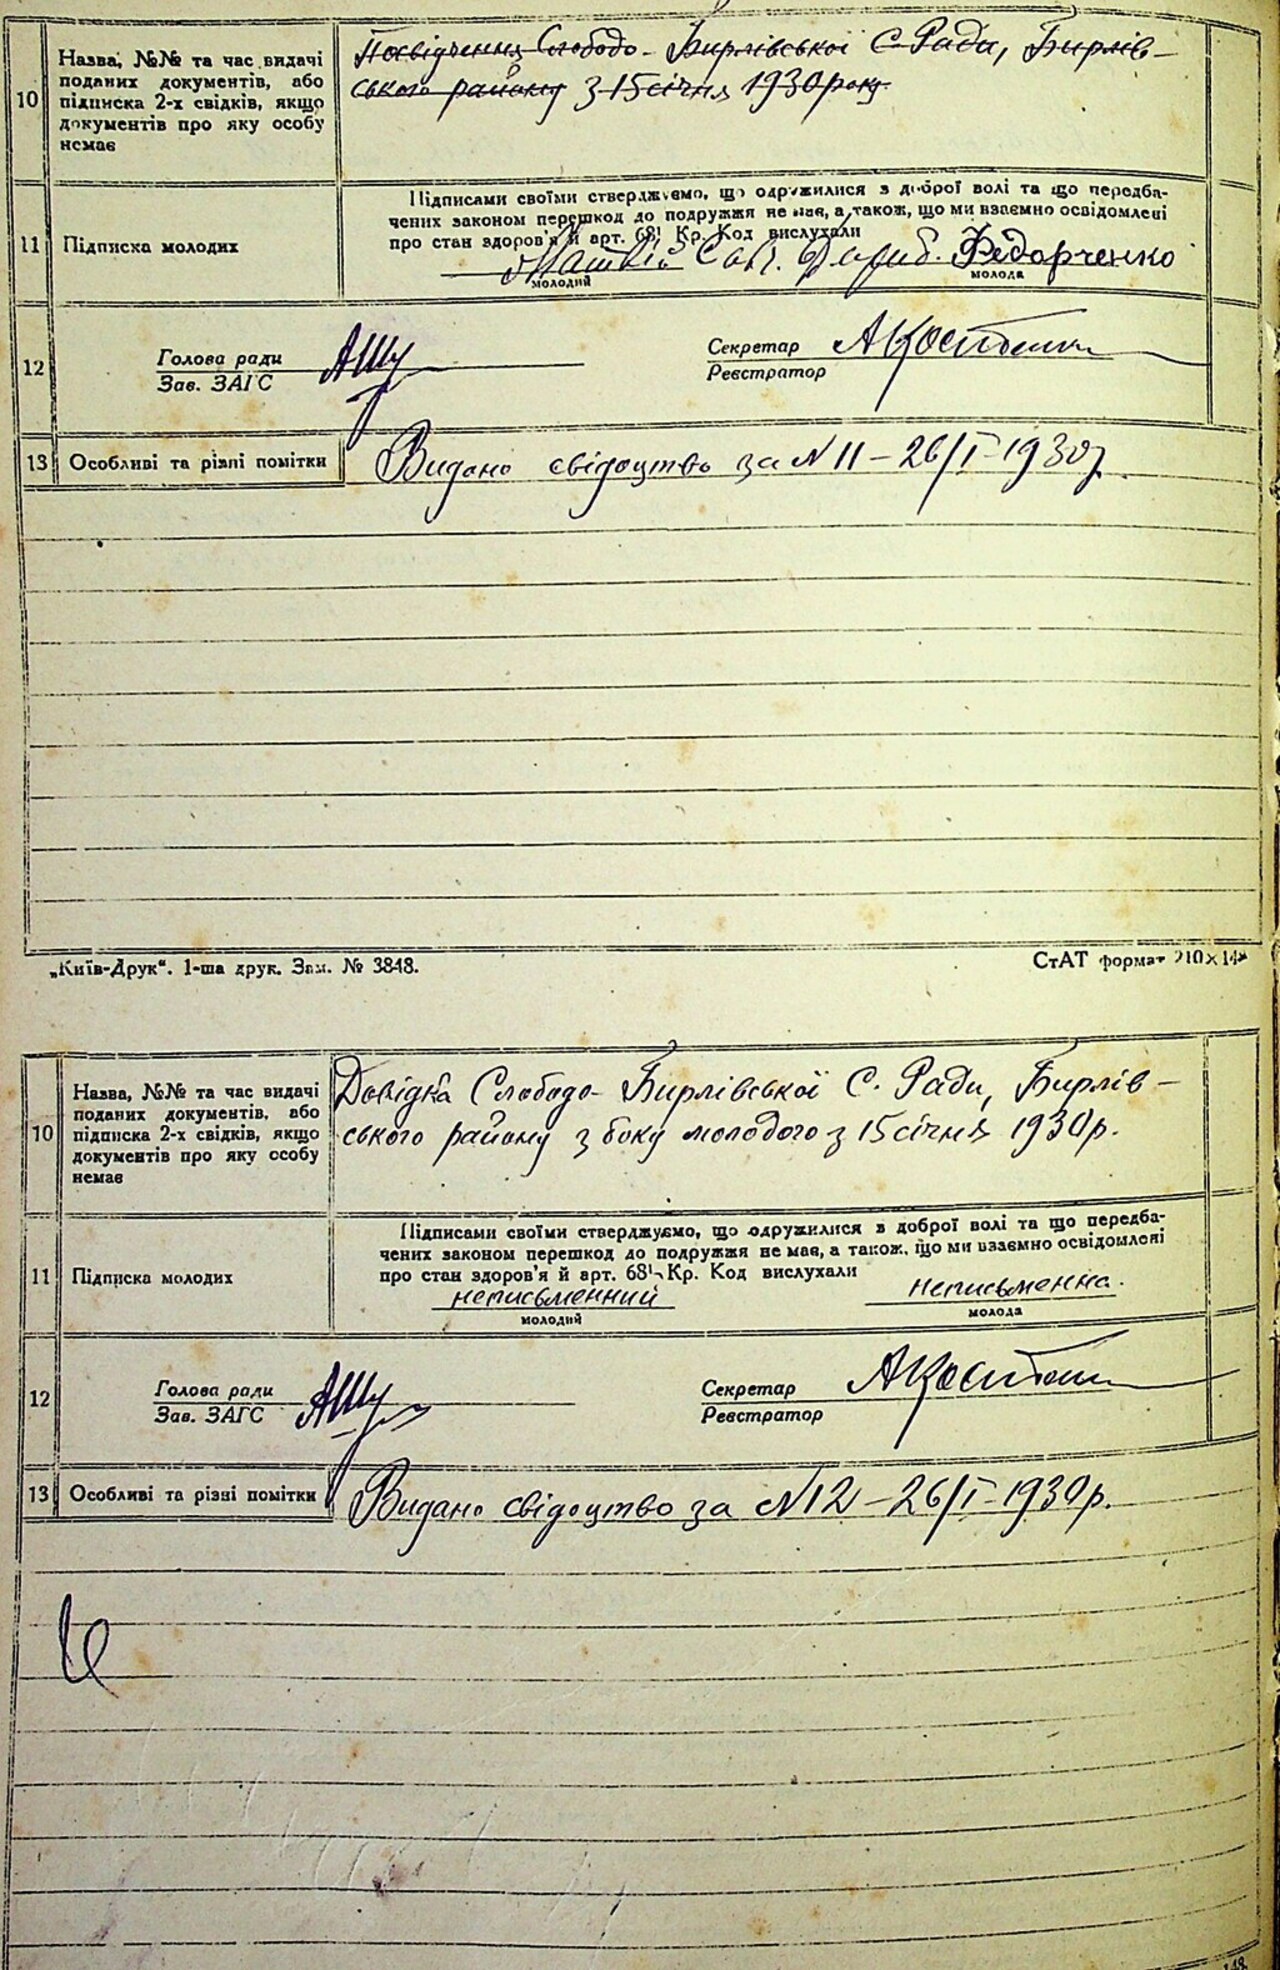 10
Назва, №№ та час видачі
поданих документів, або
підписка 2-х свідків, якщо
документів про яку особу
немає
Посвідчення Слободо-Бирлівської С. Ради, Бирлів-
ського району з 15 січня 1930 року
11
Підписка молодих
Підписами своїми стверджуємо, що одружилися з доброї волі та що передба-
чених законом перешкод до подружжя не має, а також, що ми взаємно освідомлені
про стан здоров'я й арт. 68¹ Кр. Код вислухали
Федорченко
молодий
молода
12
Голова ради
Зав. ЗАГС
Секретар
Реєстратор
13
Особливі та різні помітки
Видано свідоцтво за N 11 – 26/I – 1930 р.
„Київ-Друк“. 1-ша друк. Зам. № 3848.
СтАТ формат 210×14
10
Назва, №№ та час видачі
поданих документів, або
підписка 2-х свідків, якщо
документів про яку особу
немає
Довідка Слободо-Бирлівської С. Ради, Бирлів-
ського району з боку молодого з 15 січня 1930 р.
11
Підписка молодих
Підписами своїми стверджуємо, що одружилися в доброї волі та що передба-
чених законом перешкод до подружжя не має, а також, що ми взаємно освідомлені
про стан здоров'я й арт. 68¹ Кр. Код вислухали
неписьменний
неписьменна.
молодий
молода
12
Голова ради
Зав. ЗАГС
Секретар
Реєстратор
13
Особливі та різні помітки
Видано свідоцтво за N 12 – 26/I – 1930 р.
148.